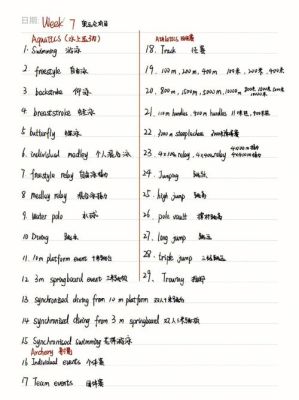 日期: Week 7 奥运会项目
Aquatics (水上运动)
1. Swimming 游泳
2. freestyle 自由泳
3. backstroke 仰泳
4 breaststroke 蛙泳
5 butterfly 蝶泳
6. individual medley 个人混合泳
7. freestyle relay 自由泳接力
8 medley relay 混合泳接力
9. Water polo 水球
10 Diving 跳水
11. 10m platform event 十米跳台
12 3m springboard event 三米跳板
13 synchronized diving from 10m platform 双人十米跳台
14 synchronized diving from 3m springboard 双人三米跳板
15 Synchronized swimming 花样游泳
Archery 射箭
16 Individual events 个体赛
17 Team events 团体赛
Athletics 田径赛
18. Track 径赛
19. 100m, 200m, 400m 100米, 200米, 400米
20. 800m, 1500m, 5000m, 10000m
21. 110m hurdles, 400m hurdles 110米栏, 400米栏
22. 3000m steeplechase
23. 4x100m relay, 4x400m relay
24. Jumping 跳跃
25. high jump 跳高
26. pole vault 撑杆跳高
27. long jump 跳远
28. triple jump 三级跳远
29. Throwing 投掷